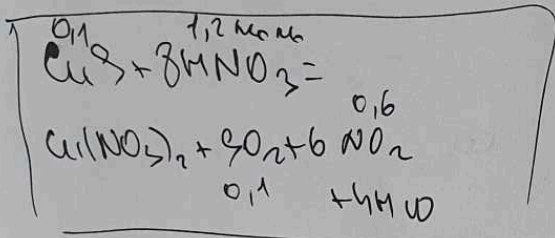 0,1 1,2 моль
CuS + 8HNO3 =
0,6
Cu(NO3)2 + SO2 + 6 NO2
0,1 + 4H2O